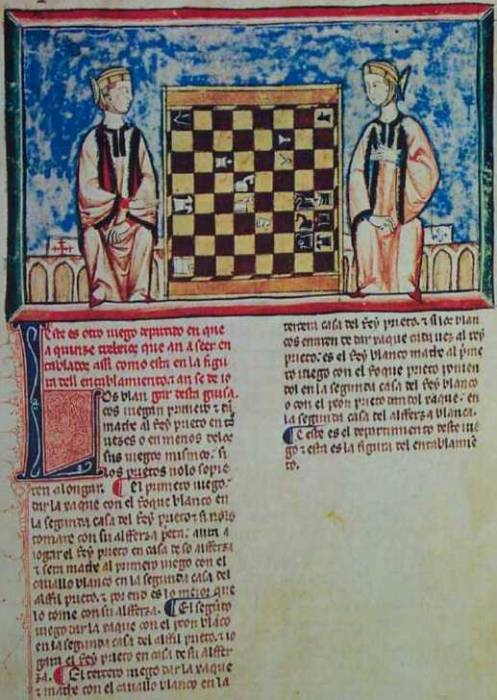 Este es otro iuego departido en que
a quinze trebeios que an a seer en
tablados assi como esta en la figu
ra dell entablamiento. ⁊ an se de io
gar desta guisa.
Los blancos iuegan primero ⁊ dan
mathe al Rey prieto en
iuegos o en menos delos
sus iuegos mismos. si
los prietos nolo sopie
ren alongar. ¶ El primero iuego.
dar la xaque con el Roque blanco en
la segunda casa del Rey prieto ⁊
tomare con su alfferza aura a
iogar el Rey prieto en casa de so alfferza
⁊ sera mathe al primero iuego con el
cauallo blanco en la segunda casa del
alffil prieto. ⁊ por end es lo meior que
lo tome con su alfferza. ¶ El segundo
iuego dar la xaque con el peon blanco
en la segunda casa del alffil prieto. ⁊ io
gara el Rey prieto en casa de su alffer
za. ¶ El tercero iuego dar la xaque
⁊ mathe con el cauallo blanco en la
tercera casa del Rey prieto. ⁊ si los blan
cos erraren de dar xaque cada uez al rey
prieto: es el Rey blanco mathe al prime
ro iuego con el Roque prieto poniendol
en la segunda casa del Rey blanco
o con el peon prieto dandol xaque en
la segunda casa del alfferza blanca.
¶ E este es el departimiento deste iue
go ⁊ esta es la figura del entablamien
to.